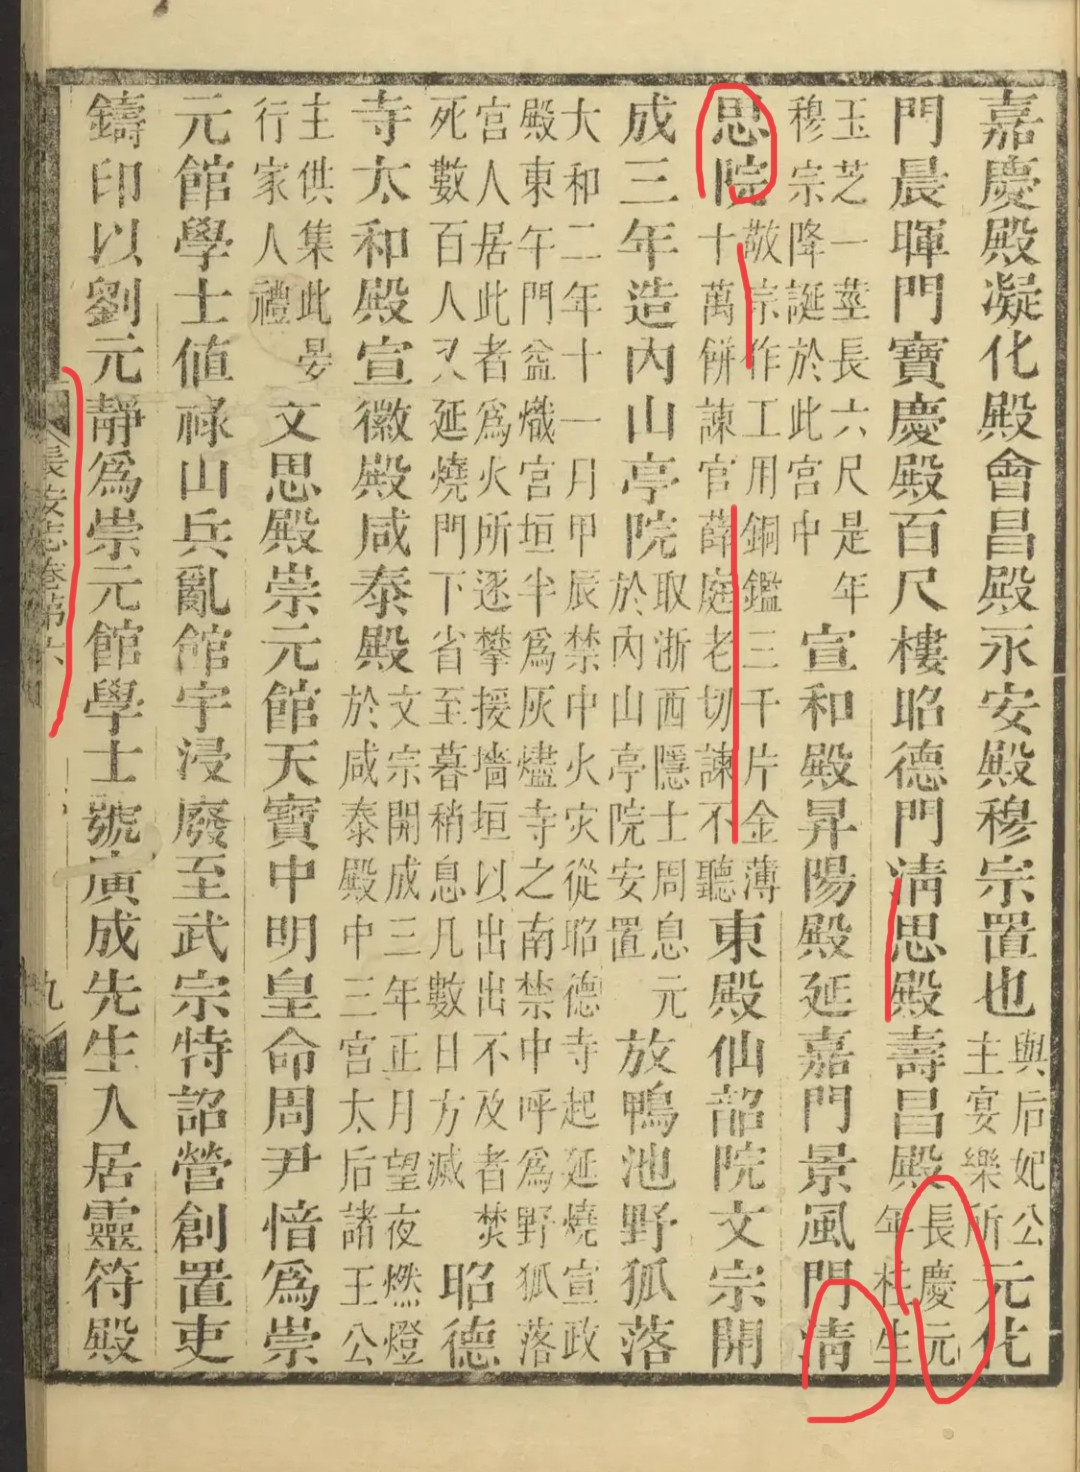 嘉慶殿凝化殿會昌殿永安殿穆宗置也與后妃公主宴樂所元化
門晨暉門寶慶殿百尺樓昭德門清思殿壽昌殿長慶元年柱生
玉芝一莖長六尺是年穆宗降誕於此宮中宣和殿昇陽殿延嘉門景風門清
思院敬宗作工用銅鑑三千片金薄十萬餅諫官薛庭老切諫不聽東殿仙韶院文宗開
成三年造內山亭院取浙西隱士周息元於內山亭院安置放鴨池野狐落
大和二年十一月甲辰禁中火灾從昭德寺起延燒宣政殿東午門益熾宮垣半爲灰燼寺之南禁中呼爲野狐落
宮人居此者爲火所逐攀援墻垣以出出不及者焚死數百人又延燒門下省至暮稍息凡數日方滅昭德
寺太和殿宣徽殿咸泰殿文宗開成三年正月望夜燃燈於咸泰殿中三宮太后諸王公
主供集此晏行家人禮文思殿崇元館天寶中明皇命周尹愔爲崇
元館學士値祿山兵亂館宇浸廢至武宗特詔營創置吏
鑄印以劉元靜爲崇元館學士號廣成先生入居靈符殿
長安志卷第六
九